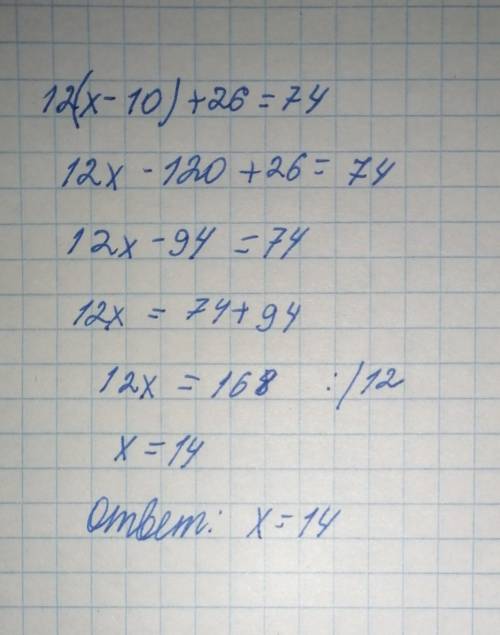 12(x-10)+26=74
12x-120+26=74
12x-94=74
12x=74+94
12x=168 :/12
x=14
Ответ: x=14